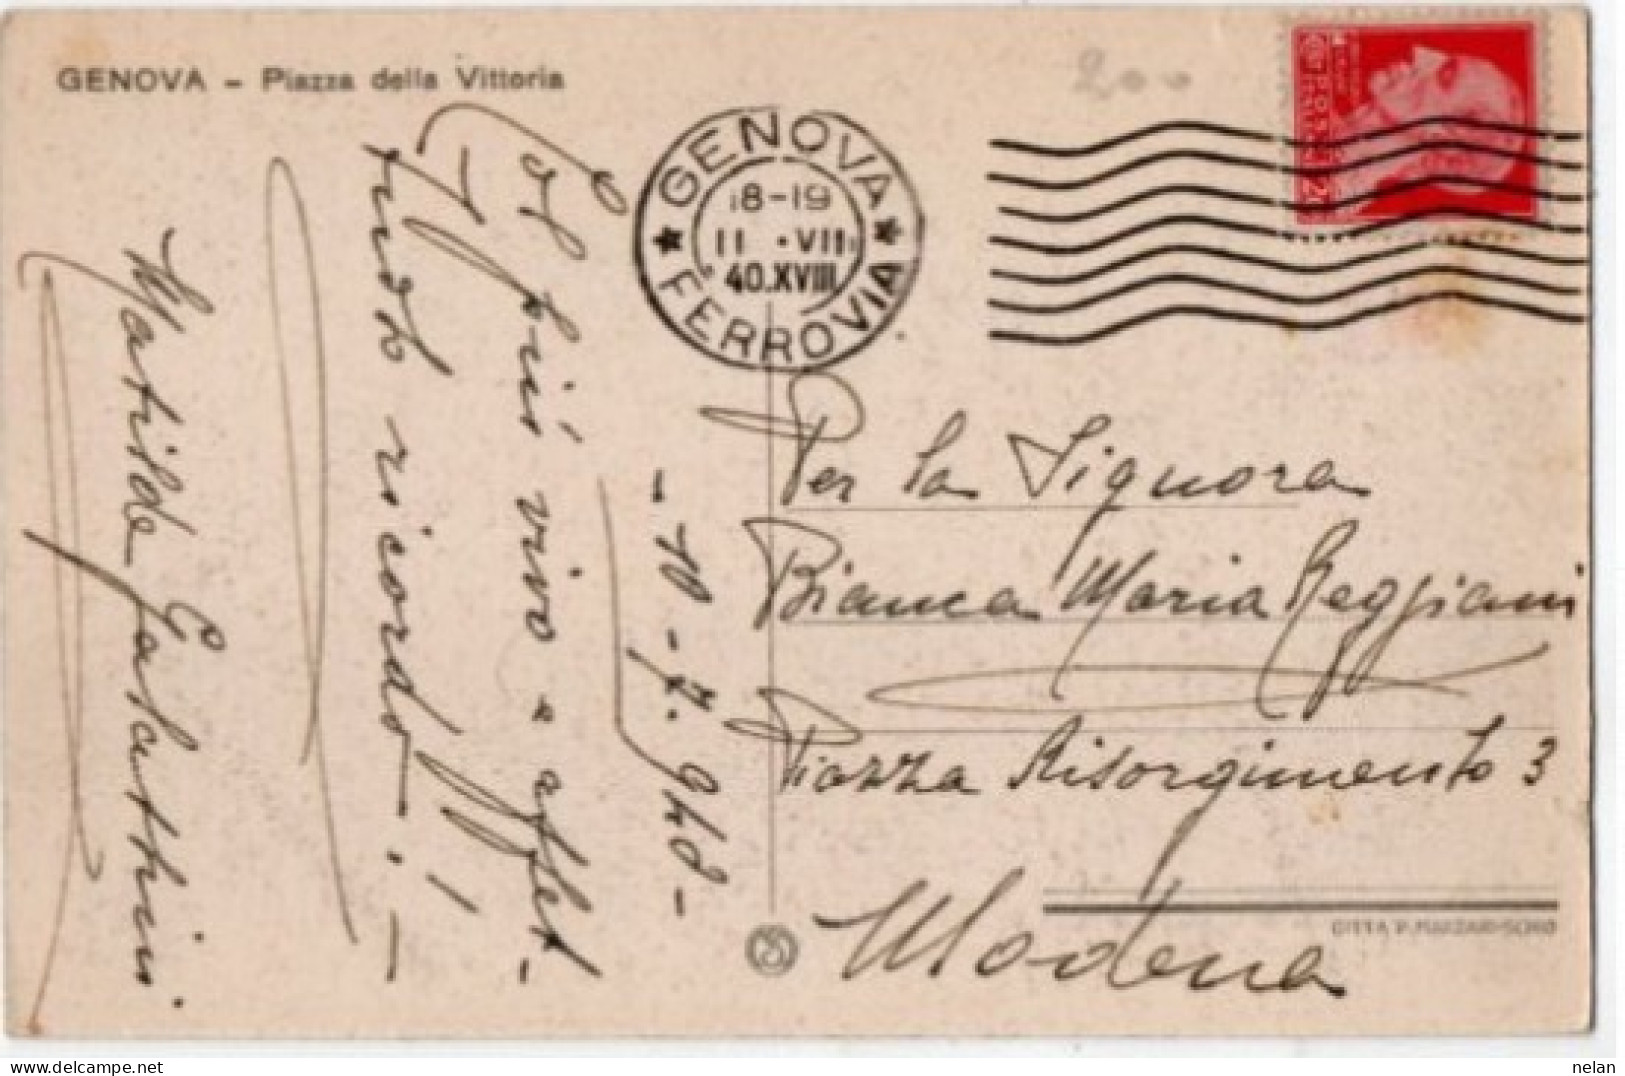 GENOVA – Piazza della Vittoria
200
GENOVA
18-19
11 · VII
40.XVIII
FERROVIA
-10-7-940-
Col più vivo e affet-
tuoso ricordo!
Matilde
Per la Signora
Bianca Maria Reggiani
Piazza Risorgimento 3
Modena
nelan